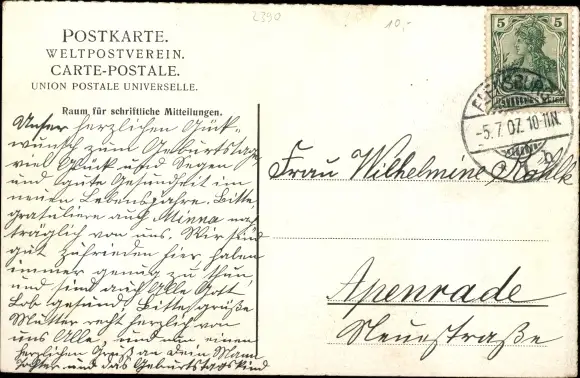 2390
10,-
POSTKARTE.
WELTPOSTVEREIN.
CARTE-POSTALE.
UNION POSTALE UNIVERSELLE.
Raum für schriftliche Mitteilungen.
Unser herzlichen Glück-
wunsch zum Geburtstage
viel Glück und Segen
und gute Gesundheit im
neuen Lebensjahre. Bitte
gratuliere auch Minna nach
träglich von uns. Wir sind
gut zufrieden hier, haben
immer genug zu thun
und sind auch Alle Gott
Lob gesund. Bitte grüße
Mutter recht herzlich von
uns Alle und nun einen
herzlichen Gruß an Dein Mann
Tochter und das Geburtstagskind
5 5
FLENSBURG
-5.7.07. 10-11N.
Frau Wilhelmine
Apenrade
Neuestraße